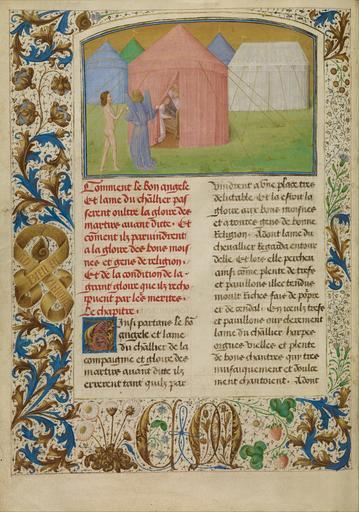 Comment le bon angele
Et lame du chllier pas
serent oultre la gloire des
martirs auant ditte. Et
coment ilz paruindrent
a la gloire des bons mois
nes et gens de religion.
Et de la condition de la
grant gloire que ilz recho
iuent par les merites.
Le chapitre.
Ainsi partans le bo
angele et lame
du chlliez de la
compaignie et gloire des
martirs auant ditte ilz
errerent tant quilz par
uindrent a vne place tres
delitable. Et la estoit la
gloire aux bons moisnes
et a toutes gens de bonne
Religion. Adont lame du
cheuallier Regarda entour
delle. Et lors elle percheu
ainsi come plente de trefs
et pauillons illec tendus
moult riches fais de popre
et de cendal. En iceulz trefs
et pauillons ouy clerement
lame du chlliez harpes
orgues vielles et plente
de bons chantres qui tres
musicquement et doulce
ment chantoient. Adont
CM